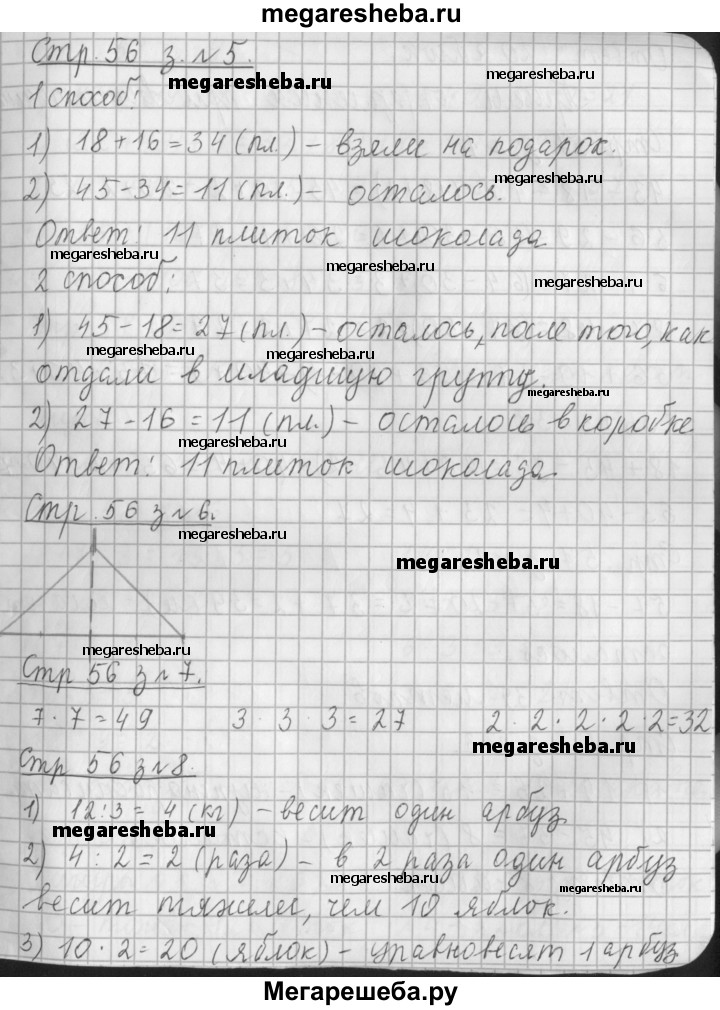 megaresheba.ru
Стр. 56 з. №5.
megaresheba.ru
megaresheba.ru
1 способ:
1) 18+16=34 (пл.) – взяли на подарок.
megaresheba.ru
2) 45-34=11 (пл.) – осталось.
Ответ: 11 плиток шоколада
megaresheba.ru
megaresheba.ru
megaresheba.ru
2 способ:
1) 45-18=27 (пл.) – осталось, после того, как
megaresheba.ru
megaresheba.ru
отдали в младшую группу.
megaresheba.ru
2) 27-16=11 (пл.) – осталось в коробке
megaresheba.ru
Ответ: 11 плиток шоколада.
Стр. 56 з №6.
megaresheba.ru
megaresheba.ru
megaresheba.ru
Стр 56 з №7.
7·7=49 3·3·3=27 2·2·2·2·2=32
megaresheba.ru
Стр 56 з №8.
1) 12:3=4 (кг) – весит один арбуз
megaresheba.ru
2) 4:2=2 (раза) – в 2 раза один арбуз
megaresheba.ru
megaresheba.ru
весит тяжелее, чем 10 яблок.
3) 10·2=20 (яблок) – уравновесят 1 арбуз
Мегарешеба.ру